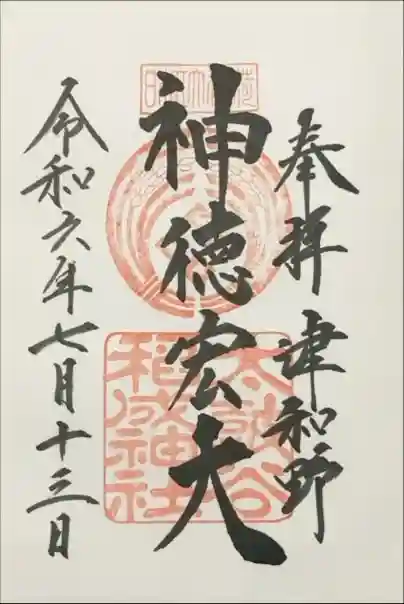 奉拝 津和野
神徳宏大
令和六年七月十三日
太皷谷
稲成神社